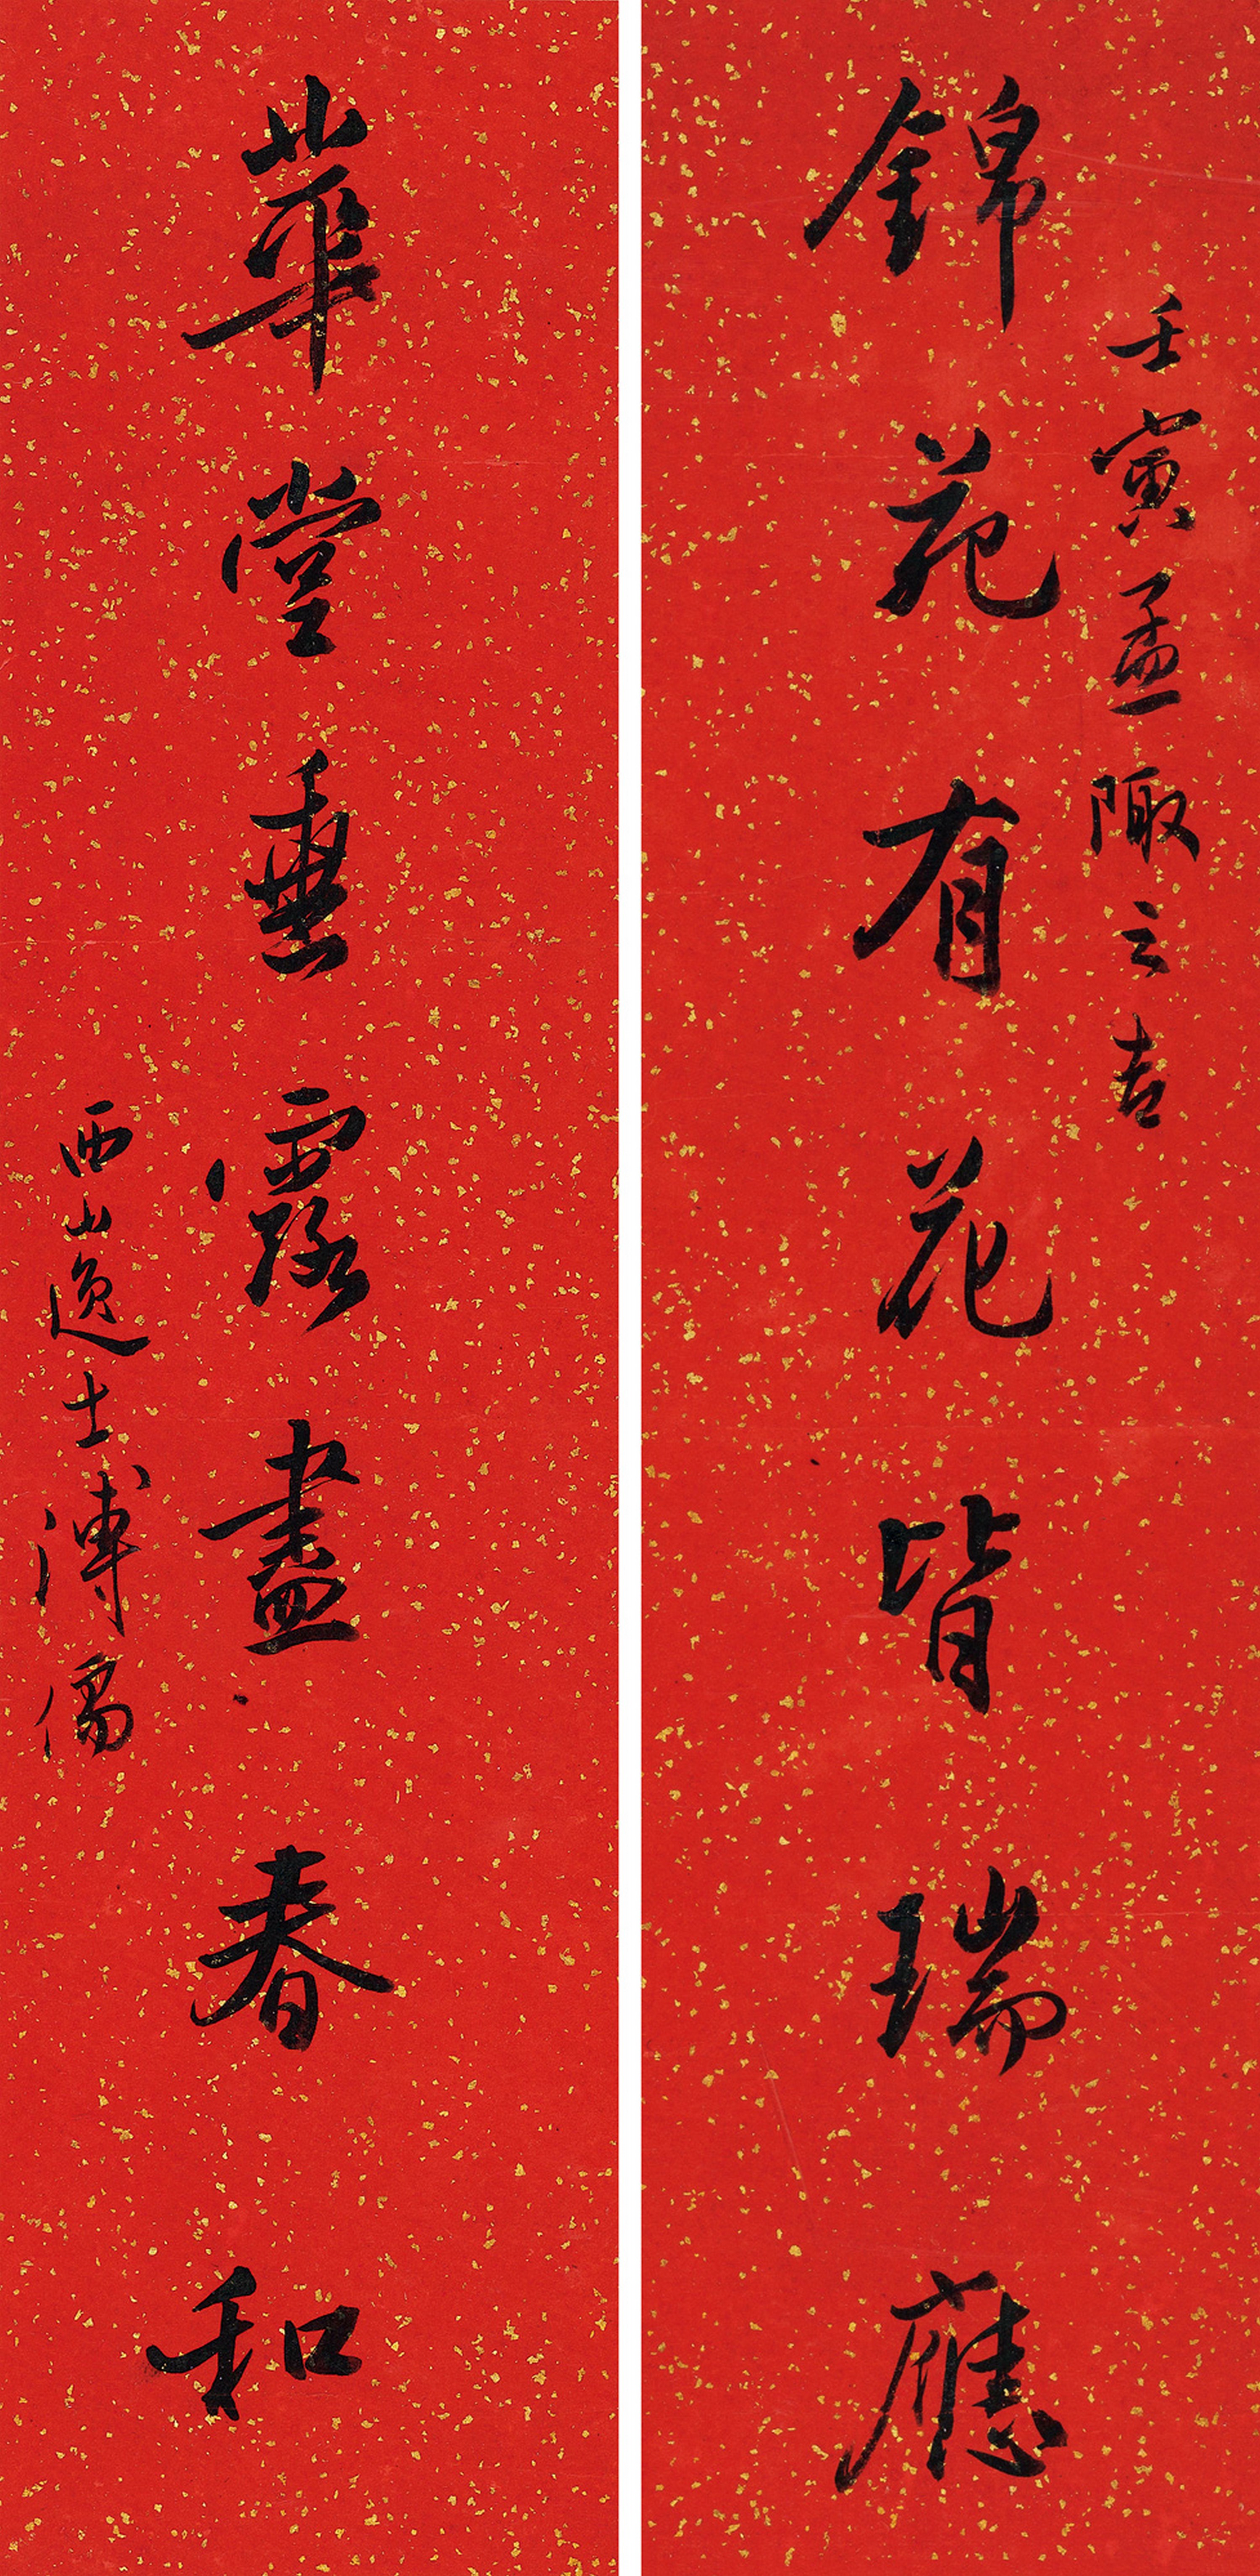 壬寅孟陬之吉
錦苑有花皆瑞應
華堂垂露盡春和
西山逸士溥儒